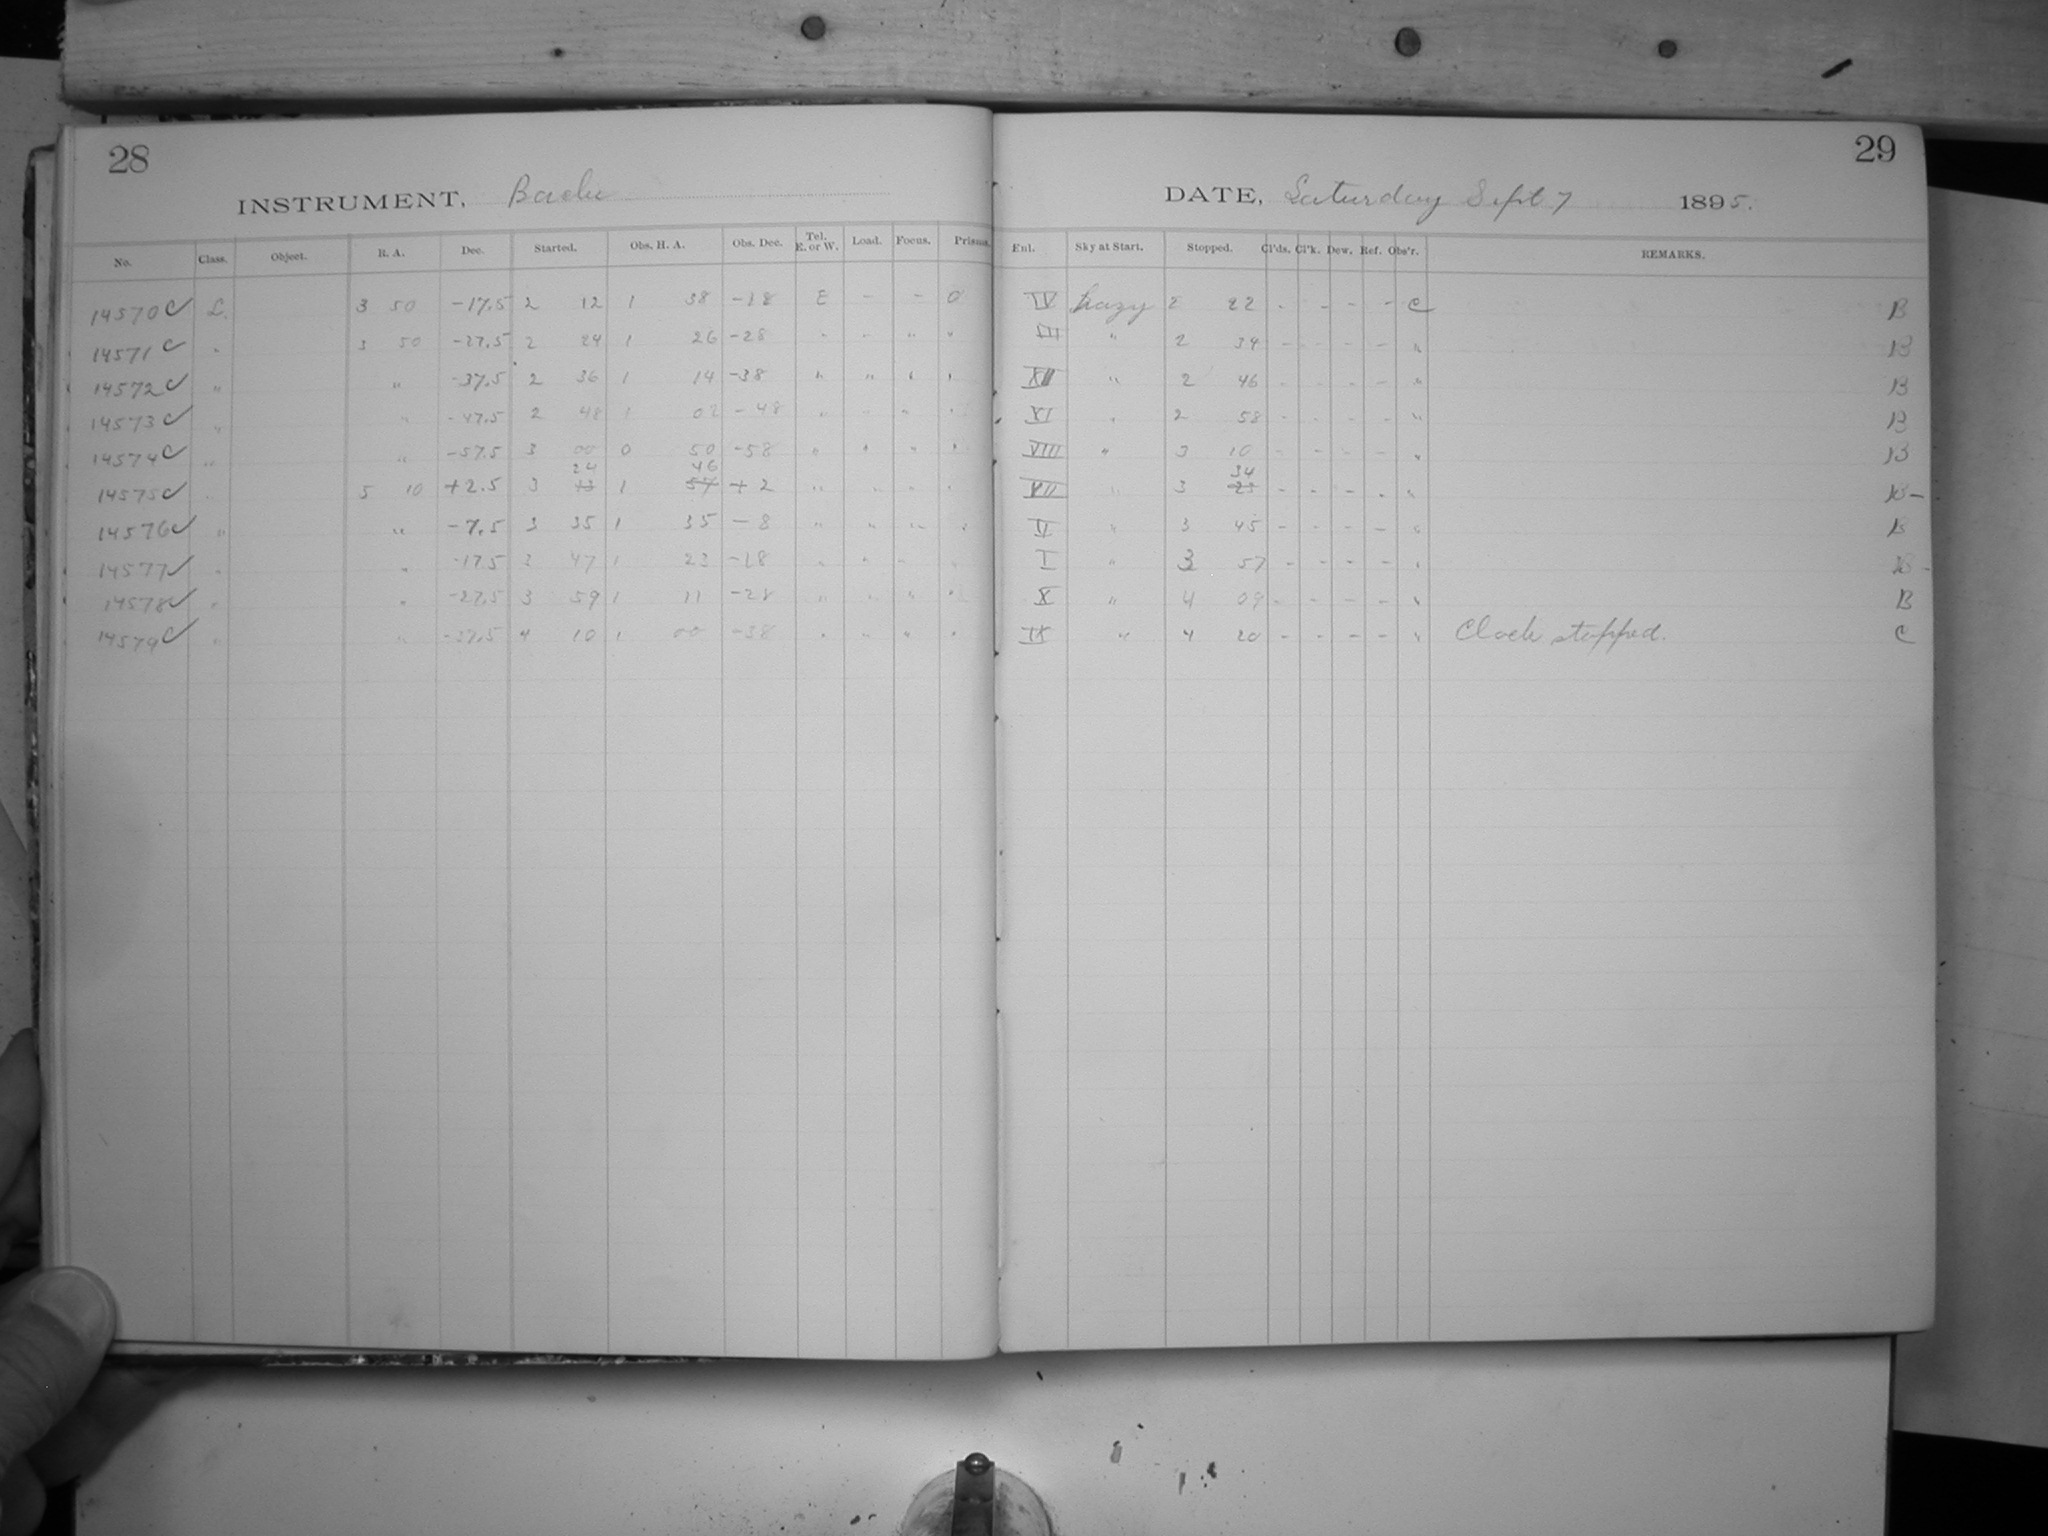 28
INSTRUMENT, Bache
No. Class. Object. R. A. Dec. Started. Obs. H. A. Obs. Dec. Tel. E. or W. Load. Focus. Prisms.
14570 C L. 3 50 -17.5 2 12 1 38 -18 E - - 0
14571 C " 3 50 -27.5 2 24 1 26 -28 " " " "
14572 C " " -37.5 2 36 1 14 -38 " " " "
14573 C " " -47.5 2 48 1 02 -48 " " " "
14574 C " " -57.5 3 00 0 50 -58 " " " "
24 46
14575 C " 5 10 +2.5 3 13 1 57 +2 " " " "
14576 C " " -7.5 3 35 1 35 -8 " " " "
14577 " " -17.5 3 47 1 23 -18 " " " "
14578 " " -27.5 3 59 1 11 -28 " " " "
14579 C " " -37.5 4 10 1 00 -38 " " " "
29
DATE, Saturday Sept 7 1895.
Enl. Sky at Start. Stopped. Cl'ds. Cl'k. Dew. Ref. Obs'r. REMARKS.
IV hazy 2 22 - - - - C B
III " 2 34 - - - - " B
XII " 2 46 - - - - " B
XI " 2 58 - - - - " B
VIII " 3 10 - - - - " B
34
VII " 3 23 - - - - " B-
V " 3 45 - - - - " B
I " 3 57 - - - - " B-
X " 4 09 - - - - " B
IX " 4 20 - - - - " Clock stopped. C